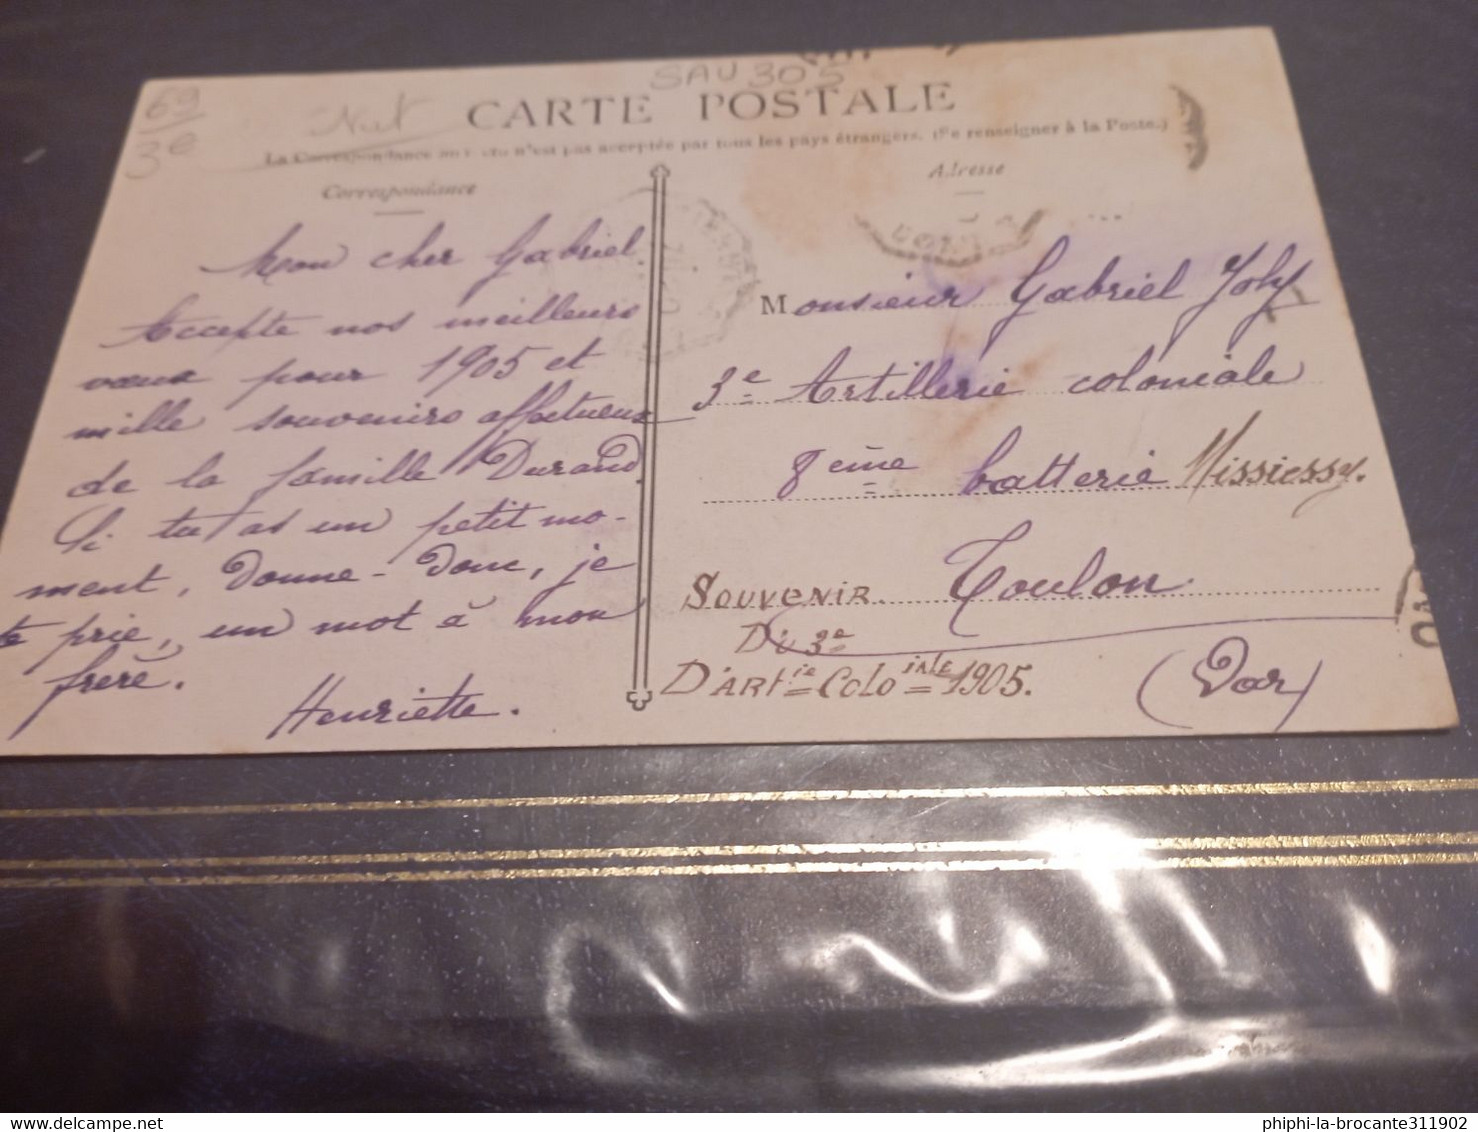 SAU 305
69
3e
CARTE POSTALE
La Correspondance au recto n'est pas acceptée par tous les pays étrangers. (Se renseigner à la Poste.)
Correspondance
Mon cher Gabriel.
Accepte nos meilleurs
vœux pour 1905 et
mille souvenirs affectueux
de la famille Durand.
Si tu as un petit mo-
ment, donne-donc, je
te prie, un mot à mon
frère.
Henriette.
Adresse
Monsieur Gabriel Joly
3e Artillerie coloniale
8eme batterie Missiessy.
Toulon
(Var)
SOUVENIR
DU 3e
D'ARTie COLOniale 1905.
phiphi-la-brocante311902